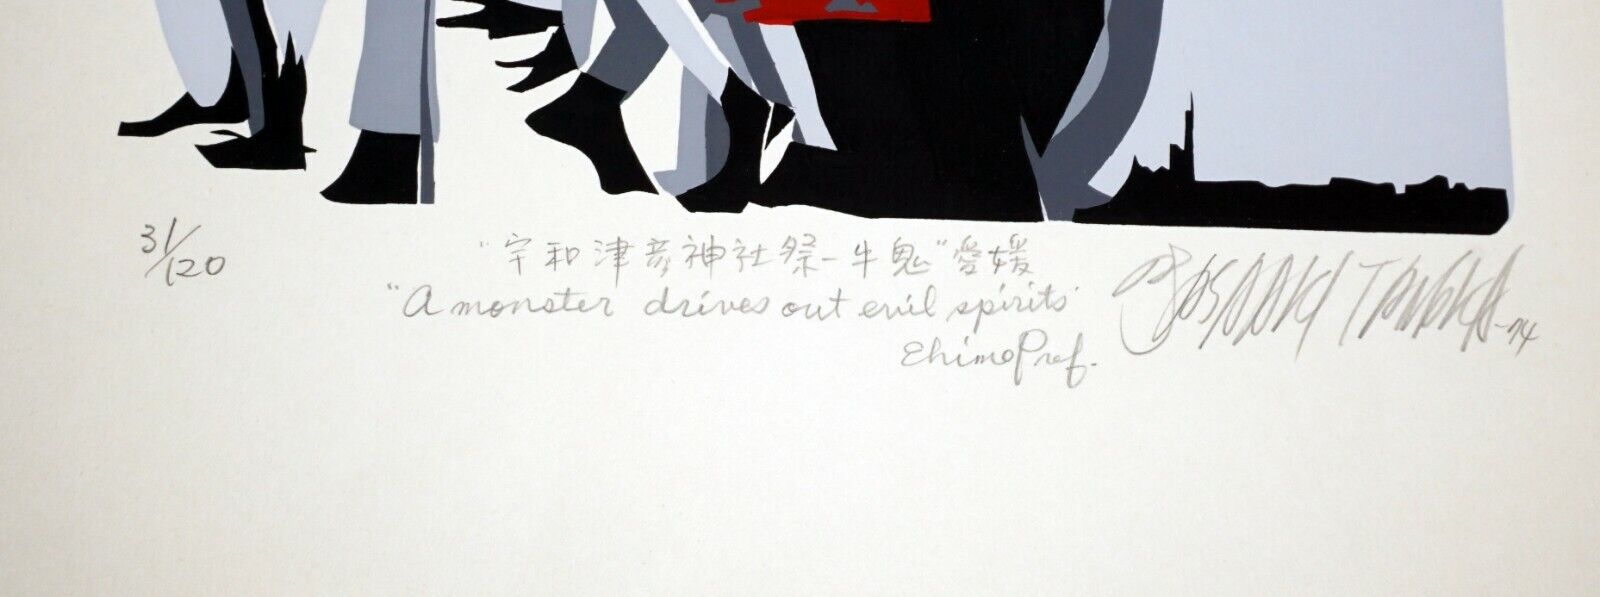 31/120
"宇和津彦神社祭-牛鬼"愛媛
"A monster drives out evil spirits"
Ehime Pref.
-74